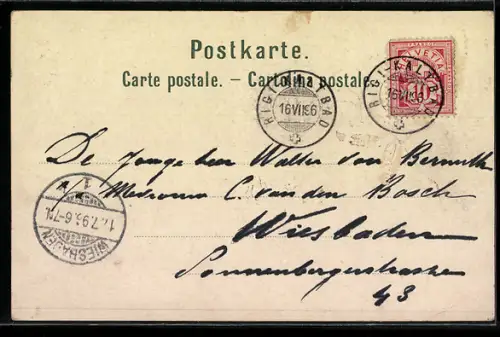 Postkarte.
Carte postale. – Cartolina postale.
HELVETIA
10
RIGI-KALTBAD
16 VII 96
RIGI-KALTBAD
16 VII 96
De Jonge heer Walter van Bermuth
Mevrouw C. van den Bosch
Wiesbaden
Sonnenbergerstrasse
43
WIESBADEN
1
17.7.96. 6-7 N.